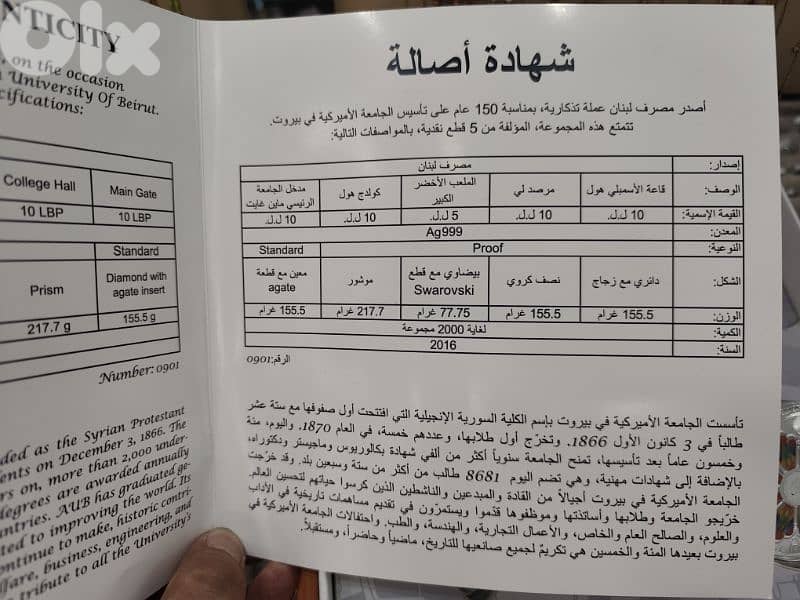 olx
NTICITY
, on the occasion
University Of Beirut.
cifications:
College Hall | Main Gate
10 LBP | 10 LBP
Standard
Prism | Diamond with agate insert
217.7 g | 155.5 g
Number: 0901
ded as the Syrian Protestant
ents on December 3, 1866. The
rs on, more than 2,000 under-
degrees are awarded annually
ntries. AUB has graduated ge-
ted to improving the world. Its
ontinue to make, historic contri-
lfare, business, engineering, and
tribute to all the University's
شهادة أصالة
أصدر مصرف لبنان عملة تذكارية، بمناسبة 150 عام على تأسيس الجامعة الأميركية في بيروت.
تتمتع هذه المجموعة، المؤلفة من 5 قطع نقدية، بالمواصفات التالية:
إصدار: | مصرف لبنان
الوصف: | قاعة الأسمبلي هول | مرصد لي | الملعب الأخضر الكبير | كولدج هول | مدخل الجامعة الرئيسي ماين غايت
القيمة الإسمية: | 10 ل.ل. | 10 ل.ل. | 5 ل.ل. | 10 ل.ل. | 10 ل.ل.
المعدن: | Ag999
النوعية: | Proof | Standard
الشكل: | دائري مع زجاج | نصف كروي | بيضاوي مع قطع Swarovski | موشور | معين مع قطعة agate
الوزن: | 155.5 غرام | 155.5 غرام | 77.75 غرام | 217.7 غرام | 155.5 غرام
الكمية: | لغاية 2000 مجموعة
السنة: | 2016
الرقم: 0901
تأسست الجامعة الأميركية في بيروت بإسم الكلية السورية الإنجيلية التي افتتحت أول صفوفها مع ستة عشر
طالباً في 3 كانون الأول 1866. وتخرّج أول طلابها، وعددهم خمسة، في العام 1870. واليوم، مئة
وخمسون عاماً بعد تأسيسها، تمنح الجامعة سنوياً أكثر من ألفي شهادة بكالوريوس وماجيستر ودكتوراه،
بالإضافة إلى شهادات مهنية، وهي تضم اليوم 8681 طالب من أكثر من ستة وسبعين بلد. وقد خرّجت
الجامعة الأميركية في بيروت أجيالاً من القادة والمبدعين والناشطين الذين كرسوا حياتهم لتحسين العالم.
خرّيجو الجامعة وطلابها وأساتذتها وموظفوها قدّموا ويستمرّون في تقديم مساهمات تاريخية في الآداب
والعلوم، والصالح العام والخاص، والأعمال التجارية، والهندسة، والطب. واحتفالات الجامعة الأميركية في
بيروت بعيدها المئة والخمسين هي تكريمٌ لجميع صانعيها للتاريخ، ماضياً وحاضراً، ومستقبلاً.